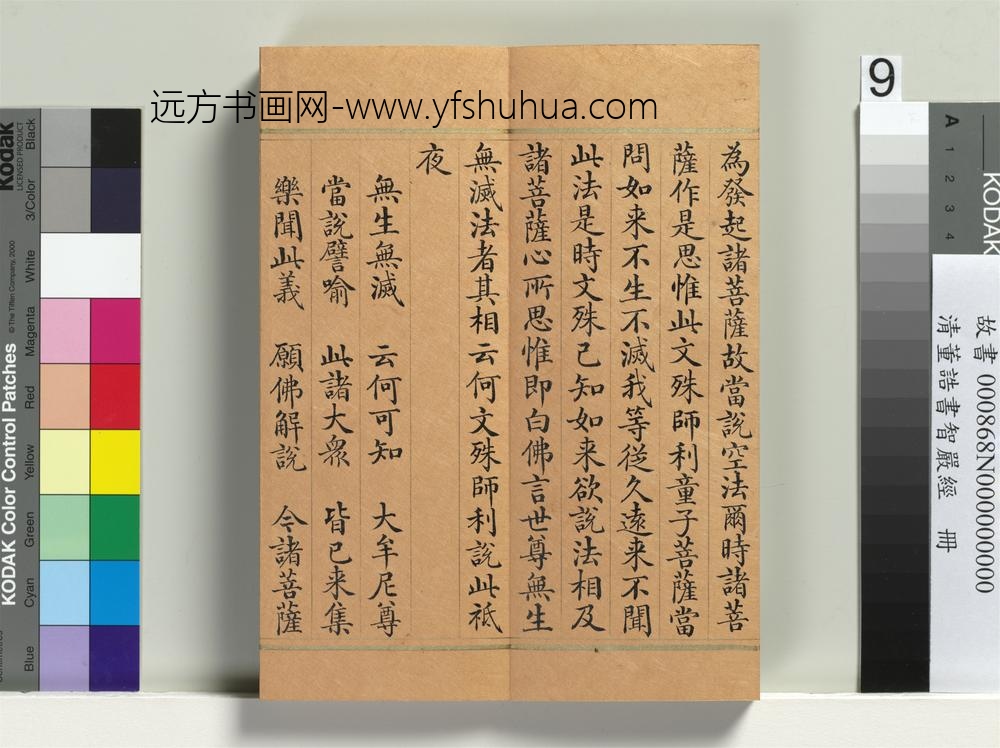 远方书画网-www.yfshuhua.com
為發起諸菩薩故當說空法爾時諸菩
薩作是思惟此文殊師利童子菩薩當
問如来不生不滅我等從久遠来不聞
此法是時文殊已知如来欲說法相及
諸菩薩心所思惟即白佛言世尊無生
無滅法者其相云何文殊師利說此祇
夜
無生無滅 云何可知 大牟尼尊
當說譬喻 此諸大衆 皆已来集
樂聞此義 願佛解說 今諸菩薩
9
A
1
2
3
4
KODAK
故書 000868N000000000
清董誥書智嚴經 冊
Kodak
LICENSED PRODUCT
KODAK Color Control Patches
© The Tiffen Company, 2000
Blue
Cyan
Green
Yellow
Red
Magenta
White
3/Color
Black